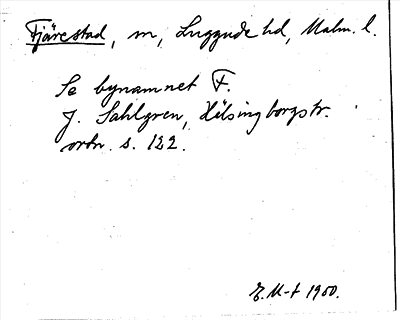 Fjärestad, m, Luggude hd, Malm. l.
Se bynamnet F.
J. Sahlgren, Hälsingborgstr.
ortn. s. 122.
E. M-t 1950.